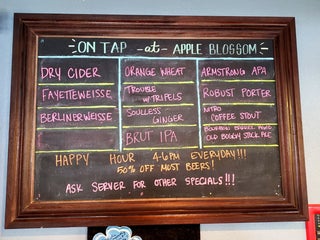 ON TAP -at- APPLE BLOSSOM
DRY CIDER
FAYETTEWEISSE
BERLINERWEISSE
ORANGE WHEAT
TROUBLE
W/TRIPELS
SOULLESS
GINGER
BRUT IPA
ARMSTRONG APA
ROBUST PORTER
NITRO
COFFEE STOUT
BOURBON BARREL AGED
OLD BOUNDY STICK ALE
HAPPY HOUR 4-6PM EVERYDAY!!!
50% OFF MOST BEERS!
ASK SERVER FOR OTHER SPECIALS!!!